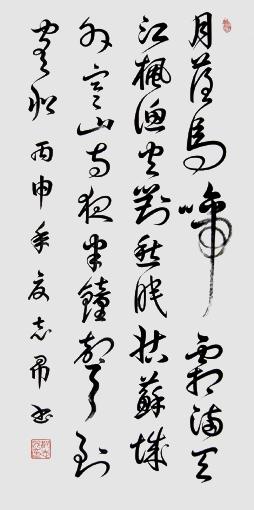 月落烏啼霜滿天
江楓漁火對愁眠姑蘇城
外寒山寺夜半鐘聲到
客船丙申年夏志書